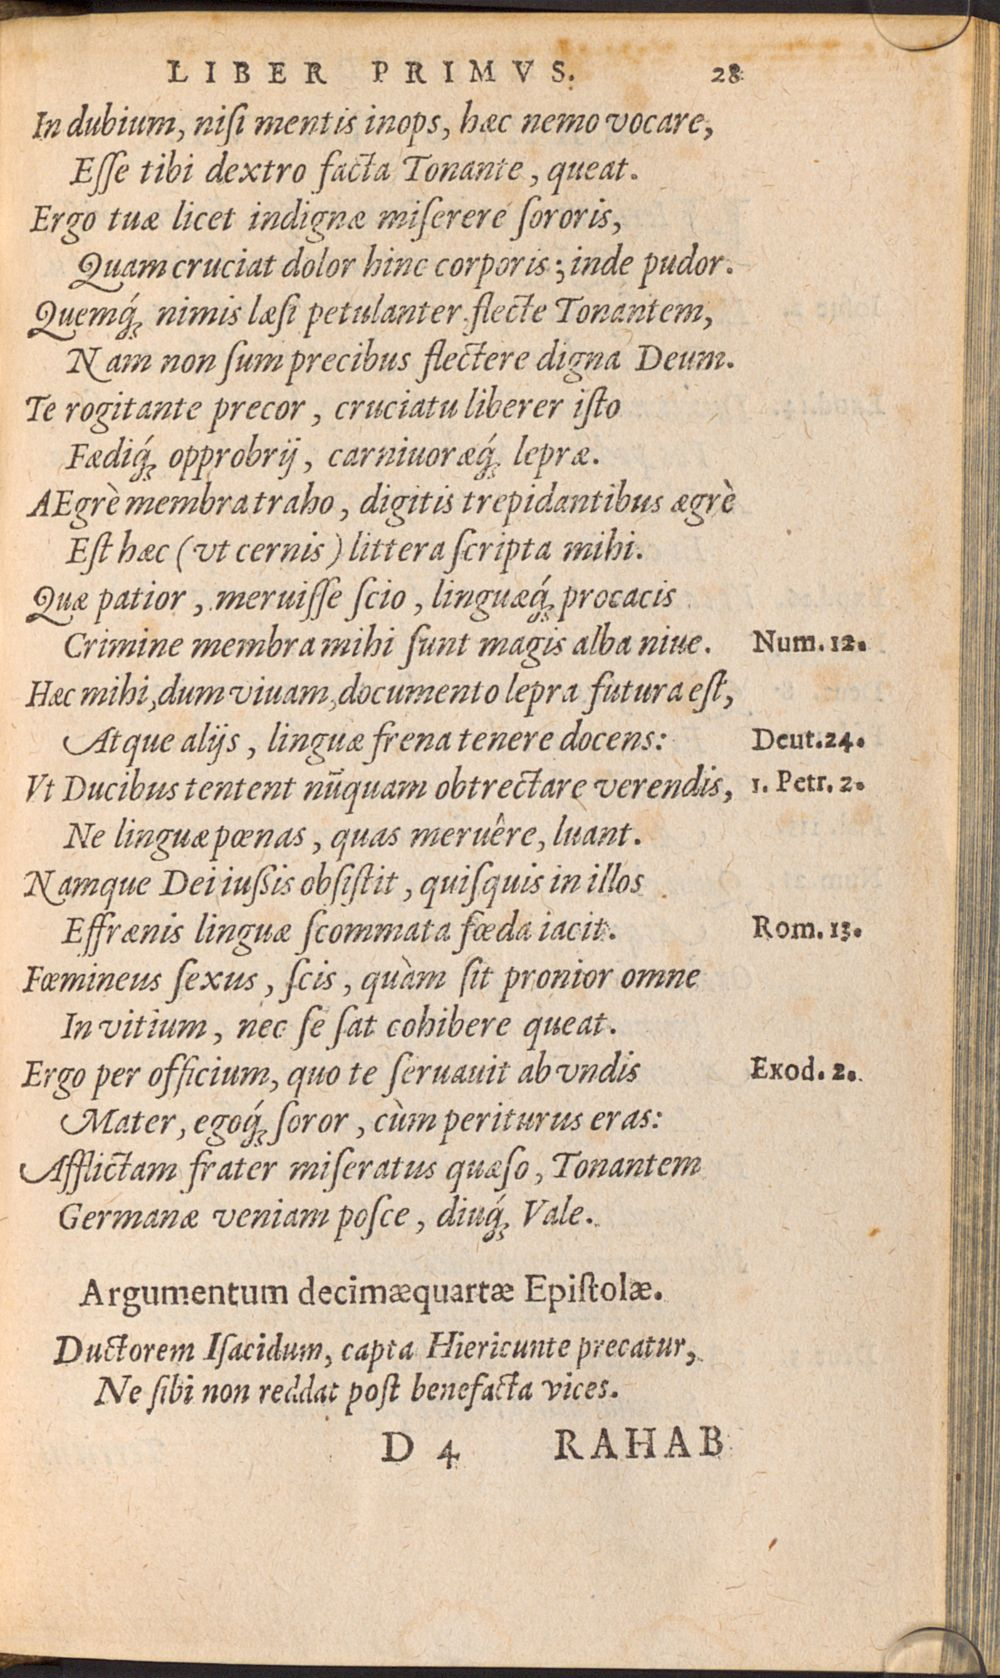 LIBER PRIMVS. 28
In dubium, niſi mentis inops, hæc nemo vocare,
Eſſe tibi dextro facta Tonante, queat.
Ergo tuæ licet indignæ miſerere ſororis,
Quam cruciat dolor hinc corporis; inde pudor.
Quemq́ꝫ nimis læſi petulanter flecte Tonantem,
Nam non ſum precibus flectere digna Deum.
Te rogitante precor, cruciatu liberer iſto
Fædiq́ꝫ opprobrij, carniuoræq́ꝫ lepræ.
AEgrè membra traho, digitis trepidantibus ægrè
Eſt hæc (vt cernis) littera ſcripta mihi.
Quæ patior, meruiſſe ſcio, linguæq́ꝫ procacis
Crimine membra mihi ſunt magis alba niue. Num. 12.
Hæc mihi, dum viuam, documento lepra futura eſt,
Atque alijs, linguæ frena tenere docens: Deut. 24.
Vt Ducibus tentent nūquam obtrectare verendis, 1. Petr. 2.
Ne linguæ pœnas, quas meruêre, luant.
Namque Dei iuſsis obſiſtit, quiſquis in illos
Effrænis linguæ ſcommata fœda iacit. Rom. 13.
Fœmineus ſexus, ſcis, quàm ſit pronior omne
In vitium, nec ſe ſat cohibere queat.
Ergo per officium, quo te ſeruauit ab vndis Exod. 2.
Mater, egoq́ꝫ ſoror, cùm periturus eras:
Afflictam frater miſeratus quæſo, Tonantem
Germanæ veniam poſce, diuq́ꝫ Vale.
Argumentum decimæquartæ Epiſtolæ.
Ductorem Iſacidum, capta Hiericunte precatur,
Ne ſibi non reddat poſt benefacta vices.
D 4 RAHAB